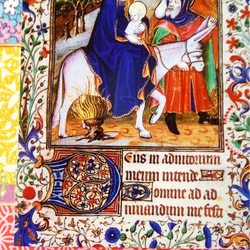 Deus in adiutorium
meum intende
Domine ad ad
iuuandum me festi